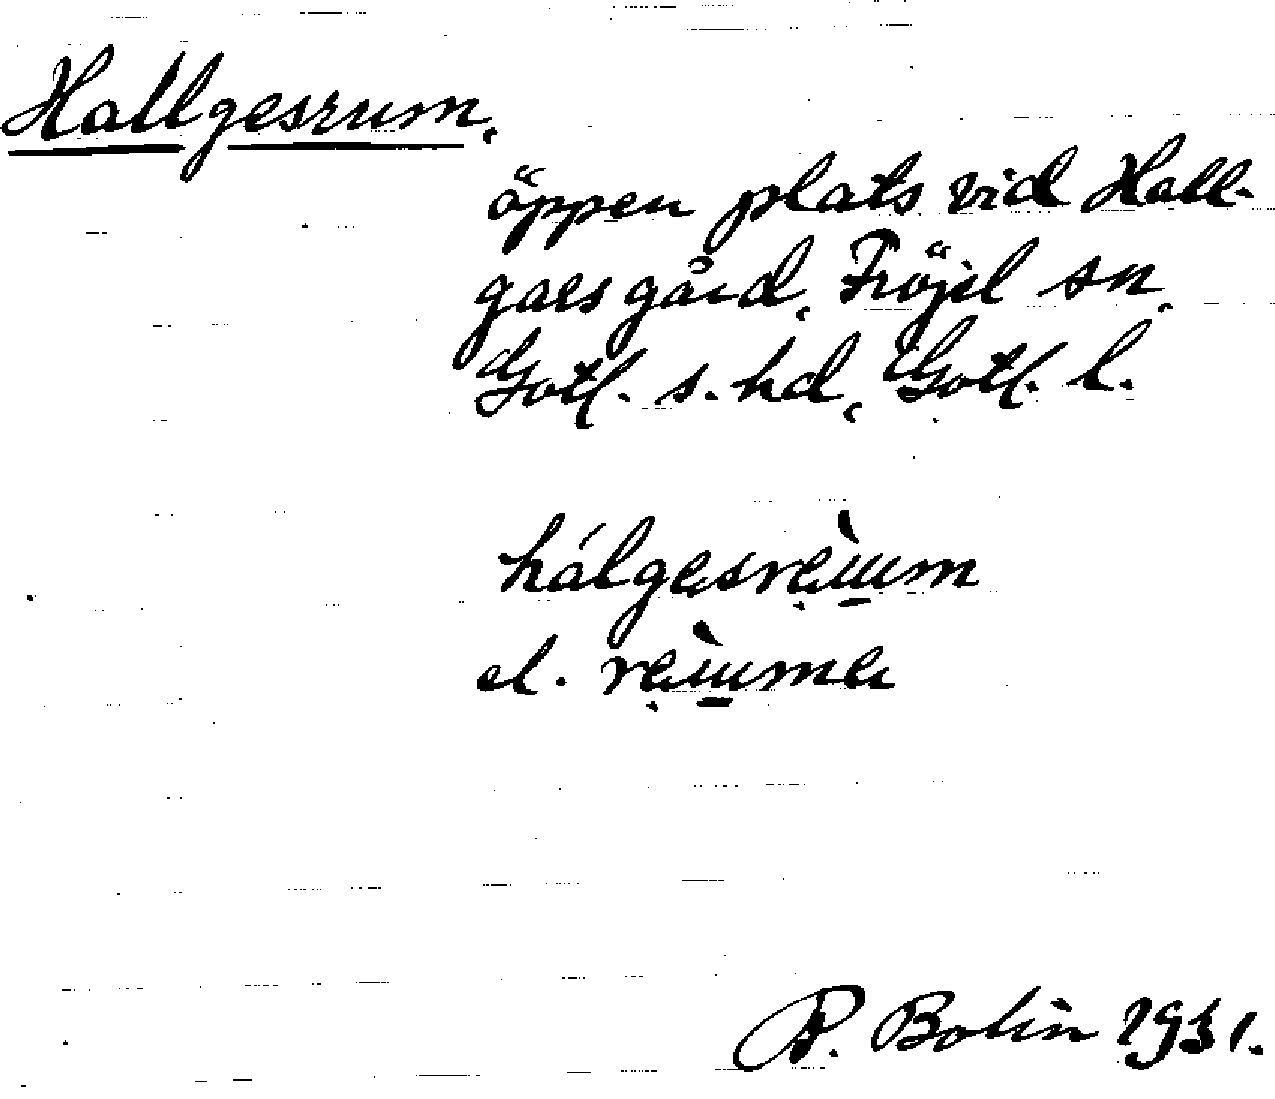 Hallgesrum,
öppen plats vid Hall-
gaesgård, Fröjel sn,
Gotl. s. hd, Gotl. l.
hálgesre̤ùm
el. re̤ùme
P. Bolin 1931.